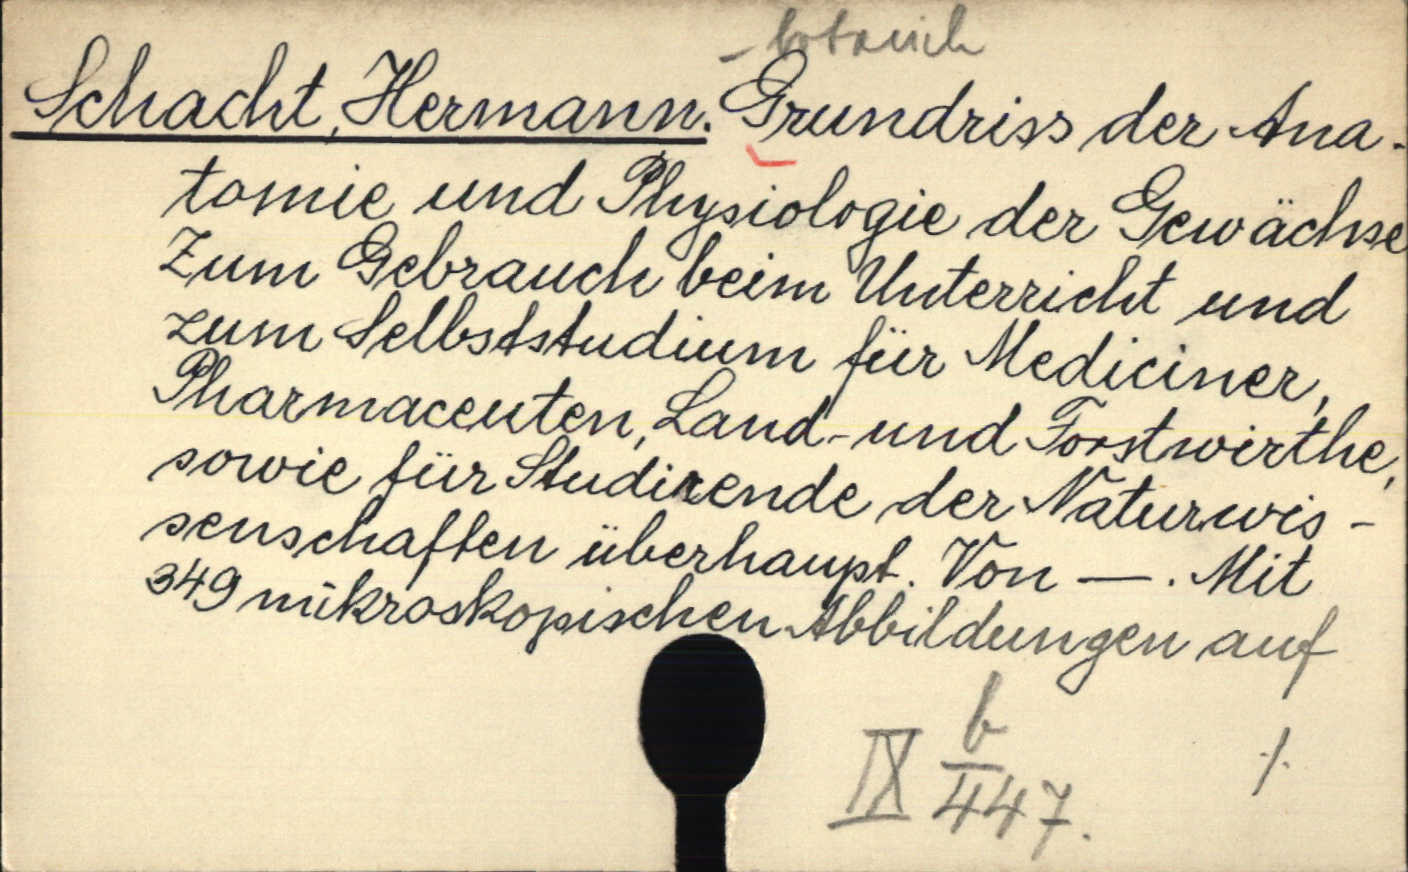 - botanik
Schacht, Hermann. Grundriss der Ana-
tomie und Physiologie der Gewächse
Zum Gebrauch beim Unterricht und
zum Selbststudium für Mediciner,
Pharmaceuten, Land- und Forstwirthe,
sowie für Studirende der Naturwis-
senschaften überhaupt. Von —. Mit
349 mikroskopischen Abbildungen auf
IX b/447.
./.